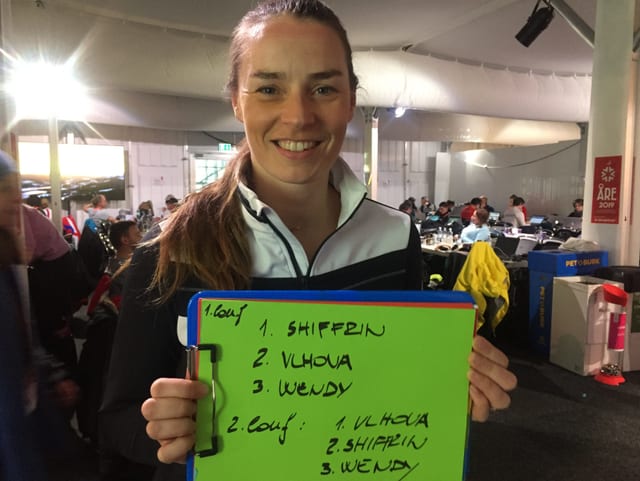 1. Lauf
1. SHIFFRIN
2. VLHOVA
3. WENDY
2. Lauf: 1. VLHOVA
2. SHIFFRIN
3. WENDY
ÅRE
2019
PET BURK